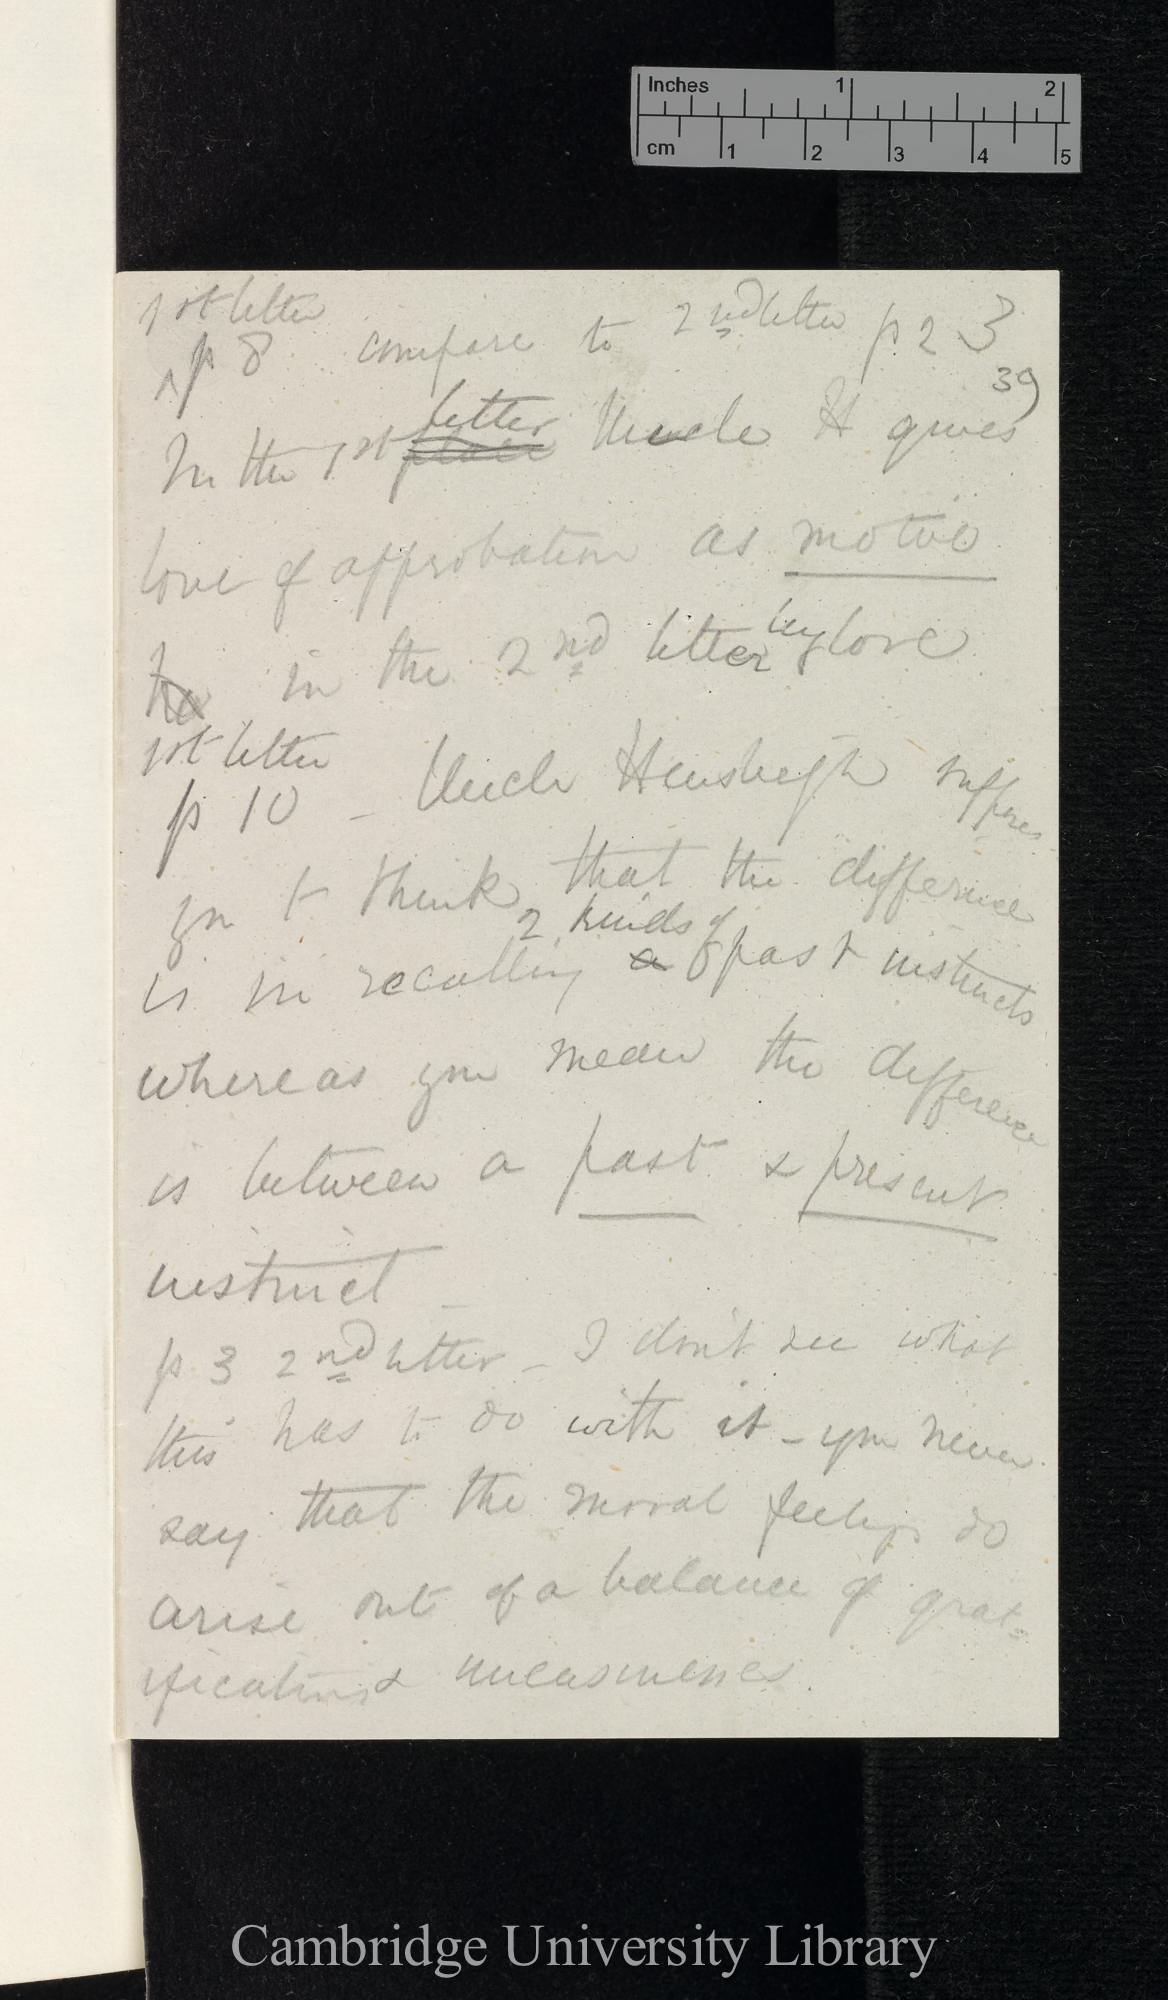 Inches 1 2
cm 1 2 3 4 5
1st letter
^p 8 compare to 2nd letter p 2 3
39
letter
In the 1st place Uncle H gives
love of approbation as motive
he in the 2nd letter by love
1st letter
p 10 - Uncle Hensleigh supposes
you to think that the difference
2 kinds of
is in recalling a past instincts
whereas you mean the difference
is between a past & present
instinct -
p 3 2nd letter - I don't see what
this has to do with it - you never
say that the moral feelings do
arise out of a balance of grat=
ifications & uneasinesses.
Cambridge University Library